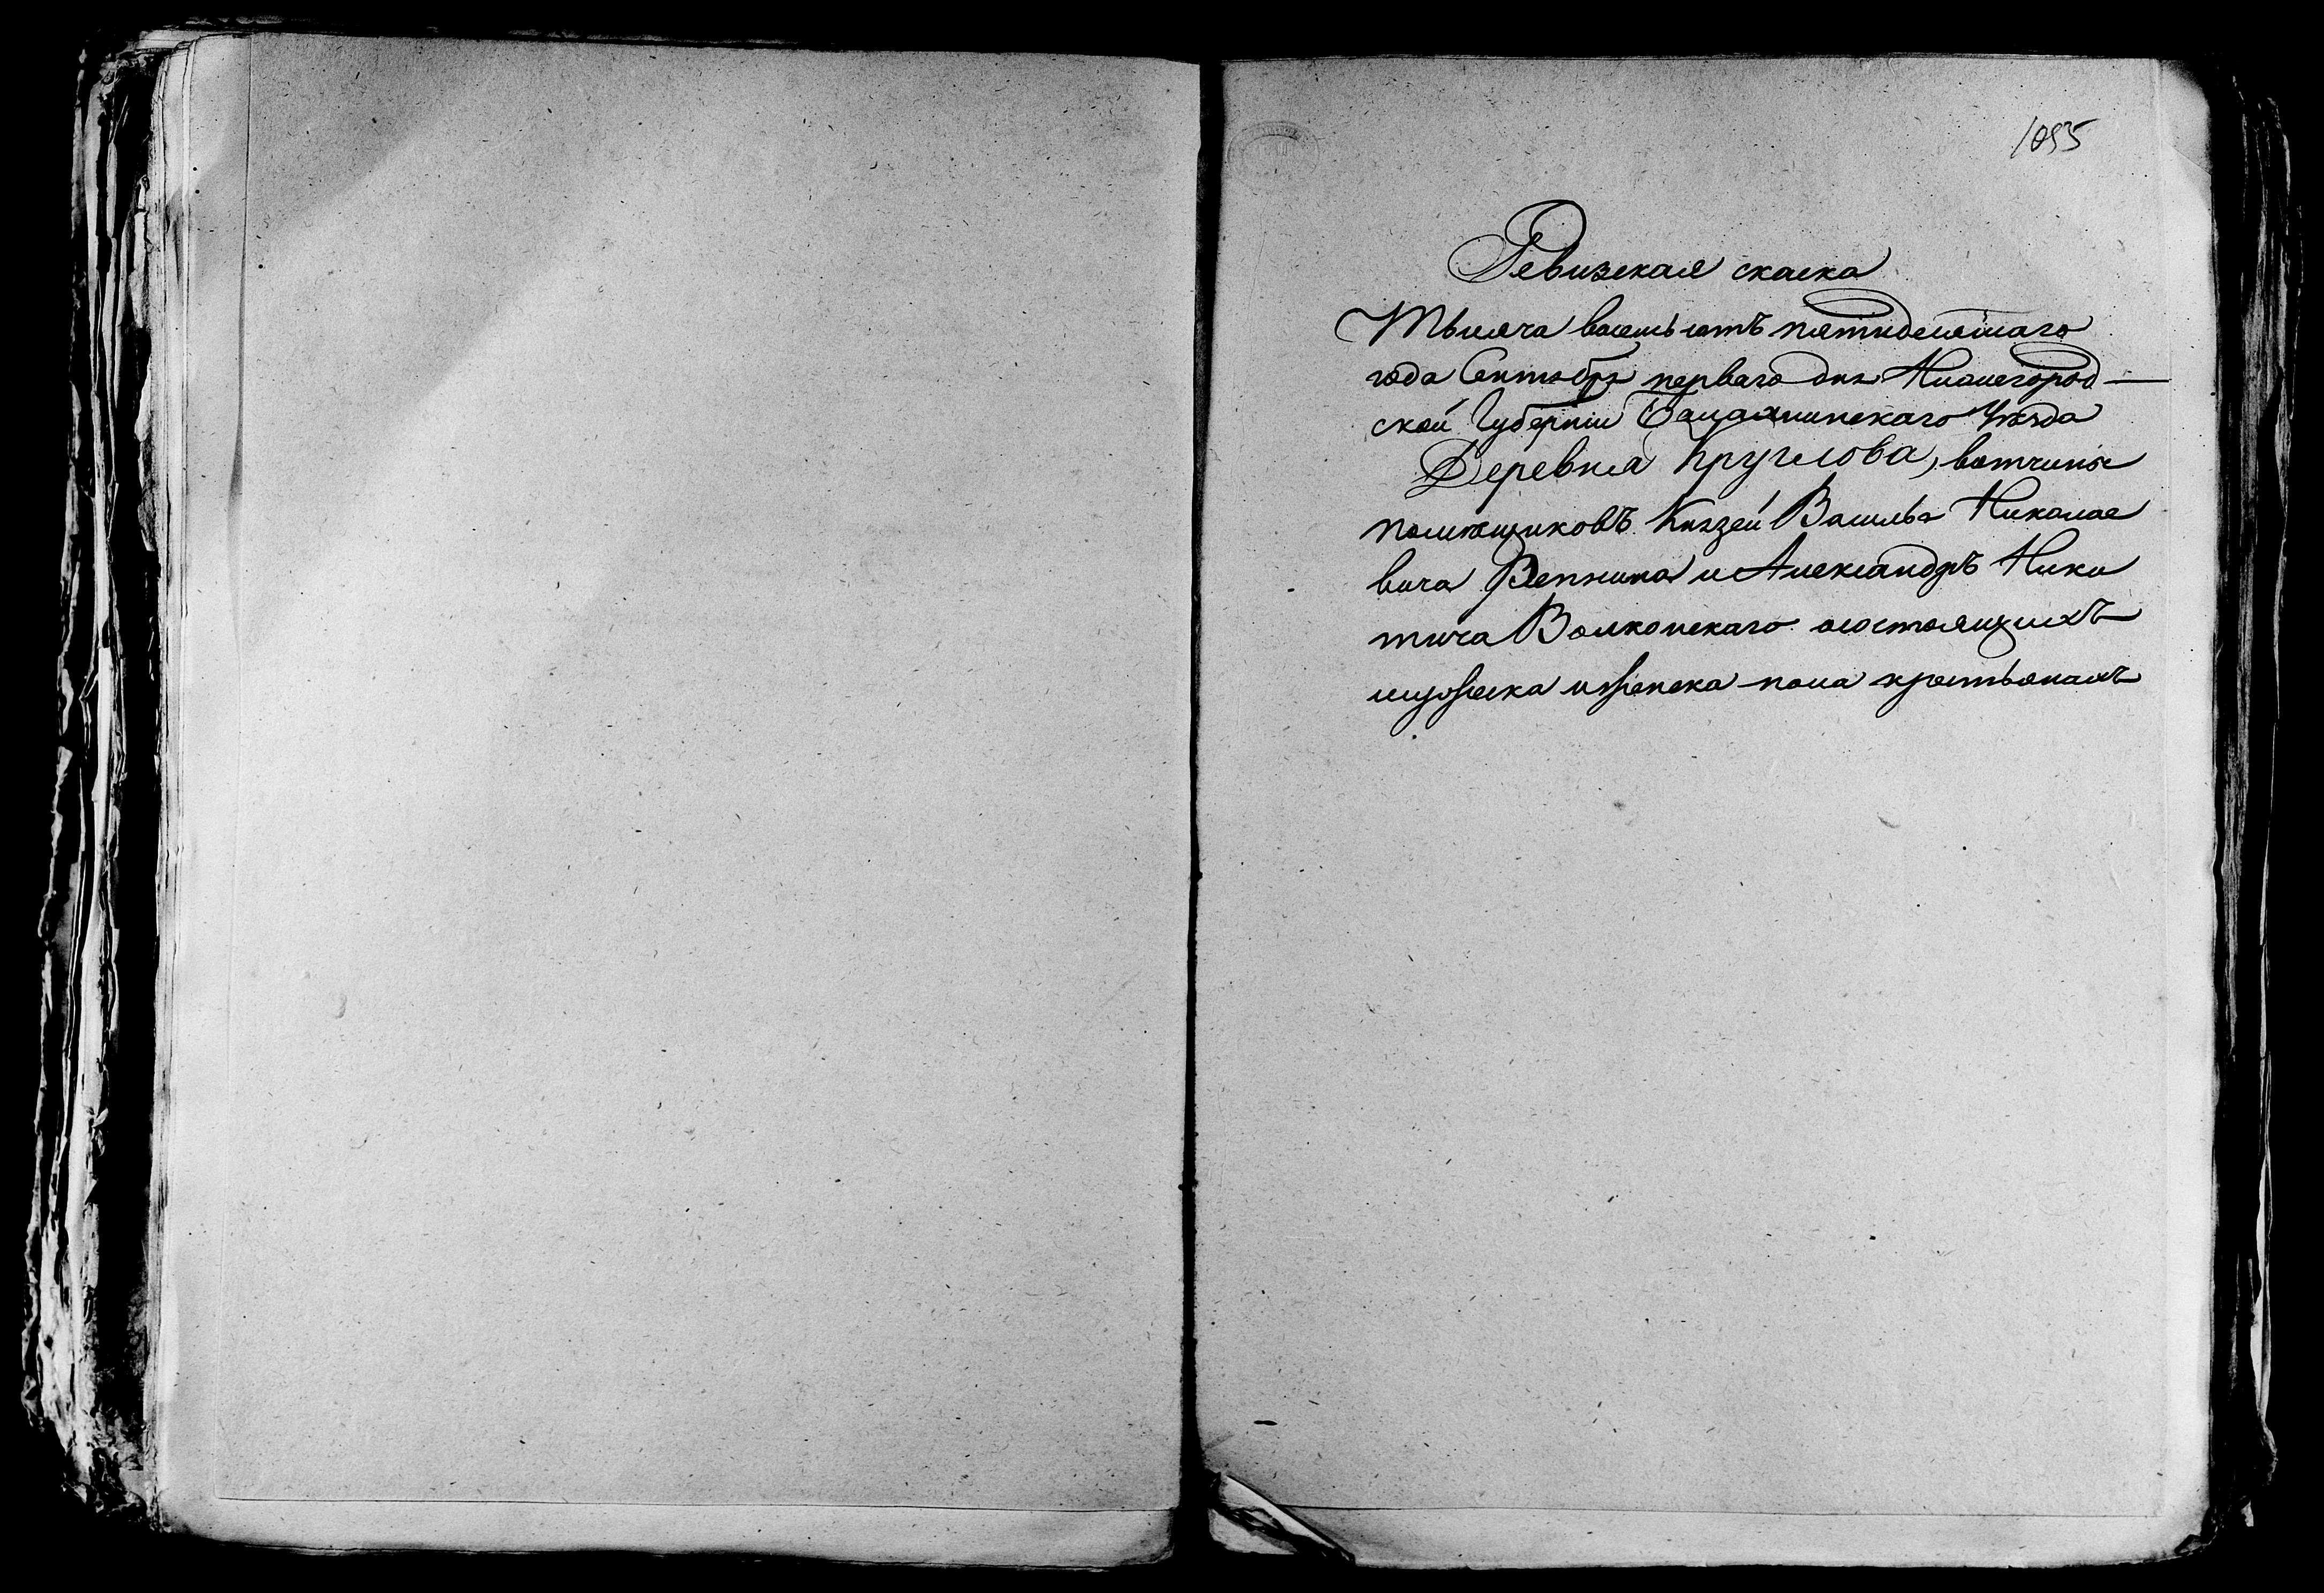 1095
Ревизская скаска
Тысяча восемьсотъ пятидесятаго
года Сентября перваго дня Нижегород-
ской Губерніи Балахнинскаго Уѣзда
Деревня Круглова, вотчины
помѣщиковъ Князей Василья Николае
вича Репнина и Александръ Ники
тича Волконскаго осостоящихъ
мужеска иженска пола крестьянахъ